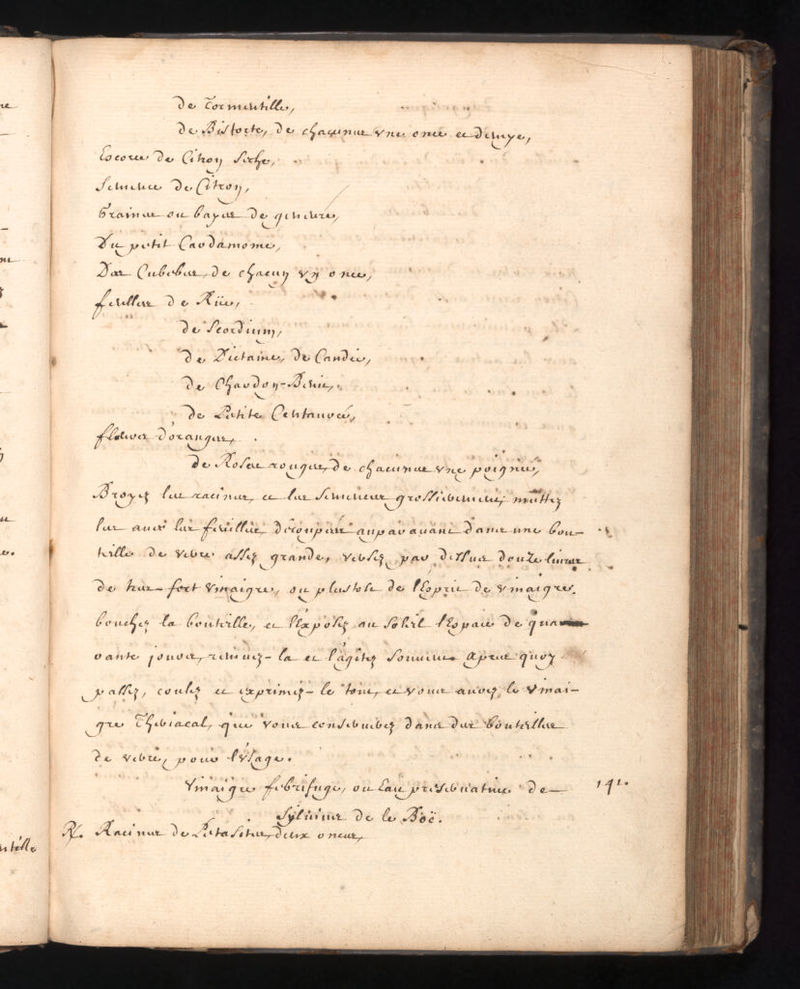 de Tormentille,
de Bistorte, de chacune vne once et demye,
Escorce de Citron seche,
Semence de Citron,
Graines ou bayes de genievre,
Du petit Cardamome,
Des Cubebes, de chacun vn once,
feuilles de Rüe,
de Scordium,
de Dictaine, de Candie,
de Chardon-Benit,
de Petite Centaureé,
fleurs d'oranges,
de Roses rouges, de chacune vne poignee,
Broyez les racines, et les semences grossierement, mettez
les avec les feuilles, decoupées auparavant dans une bou-
teille de verre assez grande, versez par dessus douze livres
de tres-fort vinaigre, ou plustost de l'Esprit de vinaigre.
bouchez la bouteille, et l'Exposez au soleil l'Espace de qua
rante jours, remuez-la et l'agitez souvent apres quoy
passez, coulez et exprimez-le tout, et vous avez le vinai-
gre Theriacal, que vous conserverez dans des bouteilles
de verre, pour l'Vsage.
Vinaigre febrifuge, ou Eau preservative de 141.
Sylvius de le Boë.
℞. Racines de Petasites, deux onces,